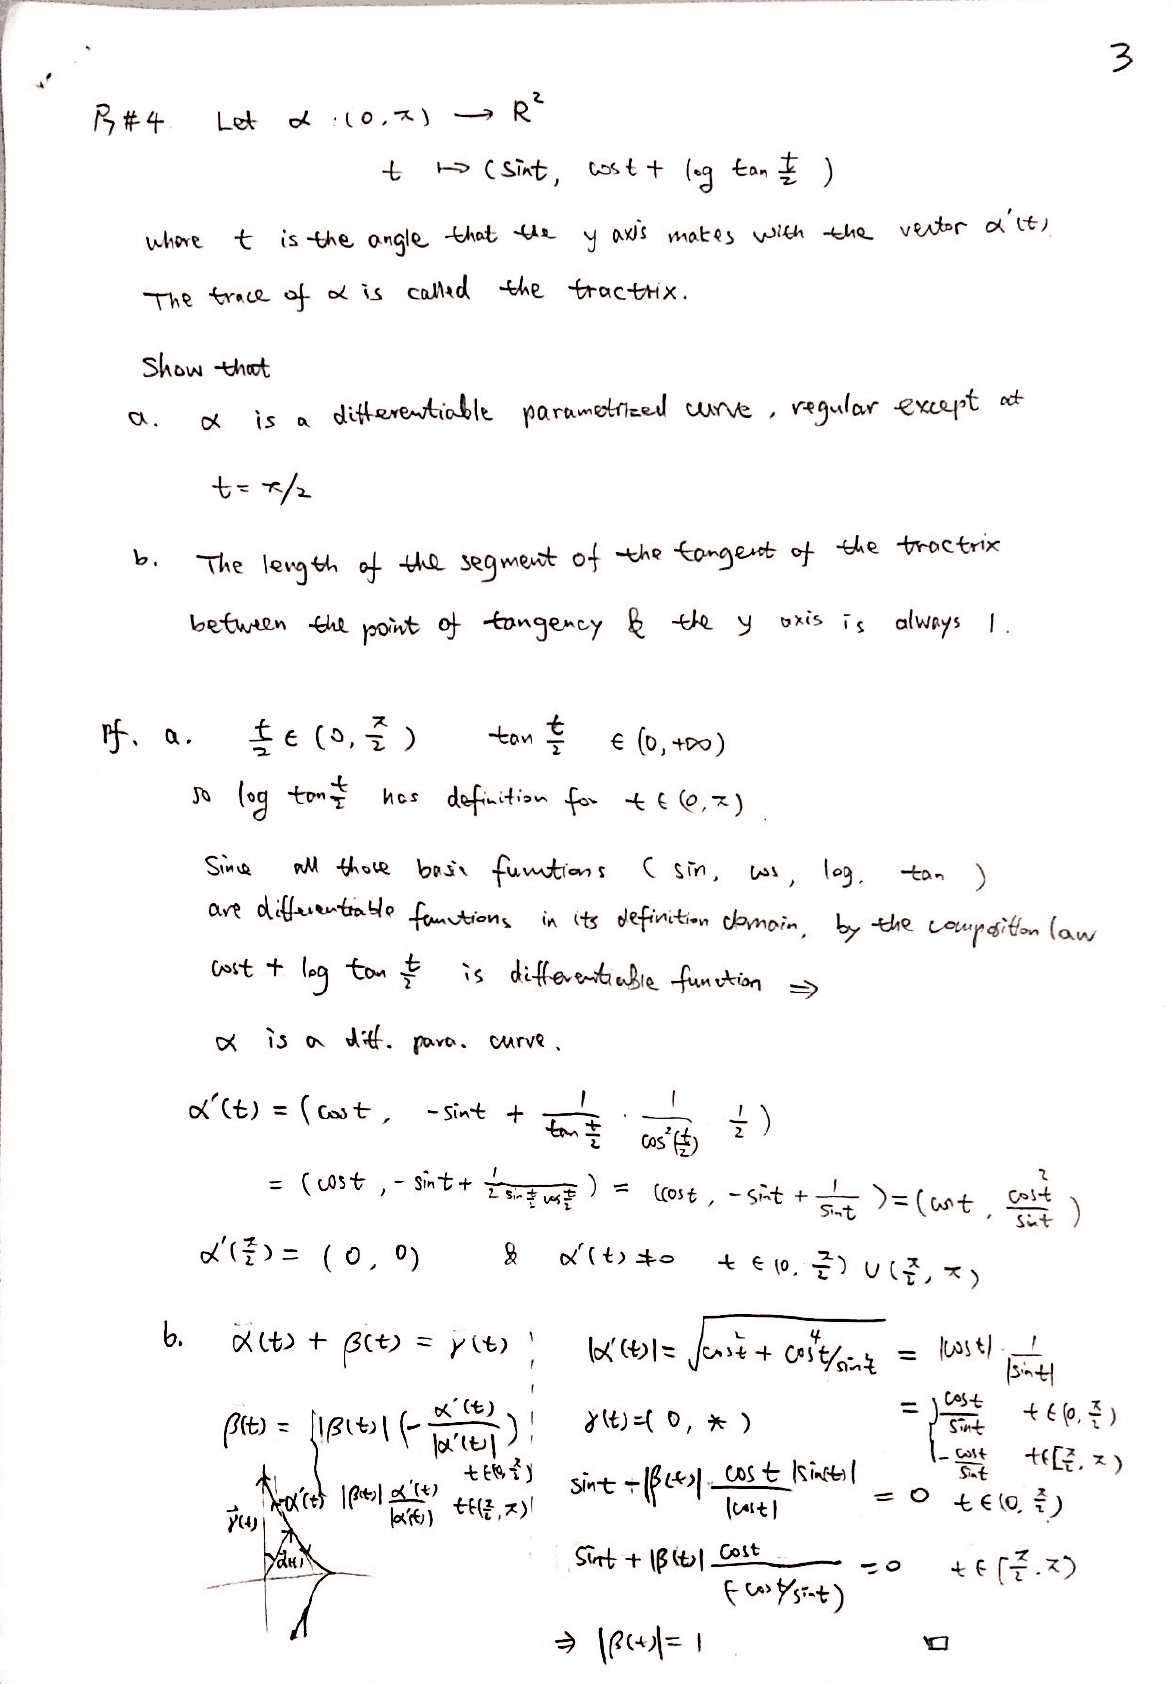 3
P #4. Let α : (0, π) → R²
t ↦ (sint, cost + log tan t/2 )
where t is the angle that the y axis makes with the vector α'(t)
The trace of α is called the tractrix.
Show that
a. α is a differentiable parametrized curve, regular except at
t = π/2
b. The length of the segment of the tangent of the tractrix
between the point of tangency & the y axis is always 1.
Pf. a. t/2 ∈ (0, π/2) tan t/2 ∈ (0, +∞)
so log tan t/2 has definition for t ∈ (0, π).
Since all those basic funtions ( sin, cos, log, tan )
are differentiable funtions in its definition domain, by the composition law
cost + log tan t/2 is differentiable funution ⇒
α is a diff. para. curve.
α'(t) = (cost, -sint + 1/(tan t/2) · 1/(cos²(t/2)) 1/2 )
= (cost, -sint + 1/(2 sin t/2 cos t/2) ) = (cost, -sint + 1/sint ) = (cost, cos²t/sint )
α'(π/2) = (0, 0) & α'(t) ≠ 0 t ∈ (0, π/2) ∪ (π/2, π)
b. α(t) + β(t) = γ(t)
β(t) = { |β(t)| (- α'(t)/|α'(t)| ) t ∈ (0, π/2)
|β(t)| α'(t)/|α'(t)| t ∈ (π/2, π)
γ(t)
-α'(t)
α(t)
|α'(t)| = √(cos²t + cos⁴t/sin²t) = |cost| · 1/|sint|
= { cost/sint t ∈ (0, π/2)
- cost/sint t ∈ [π/2, π)
γ(t) = ( 0, * )
sint - |β(t)| cost |sin(t)|/|cost| = 0 t ∈ (0, π/2)
sint + |β(t)| cost/(-cost/sint) = 0 t ∈ [π/2, π)
⇒ |β(t)| = 1 □